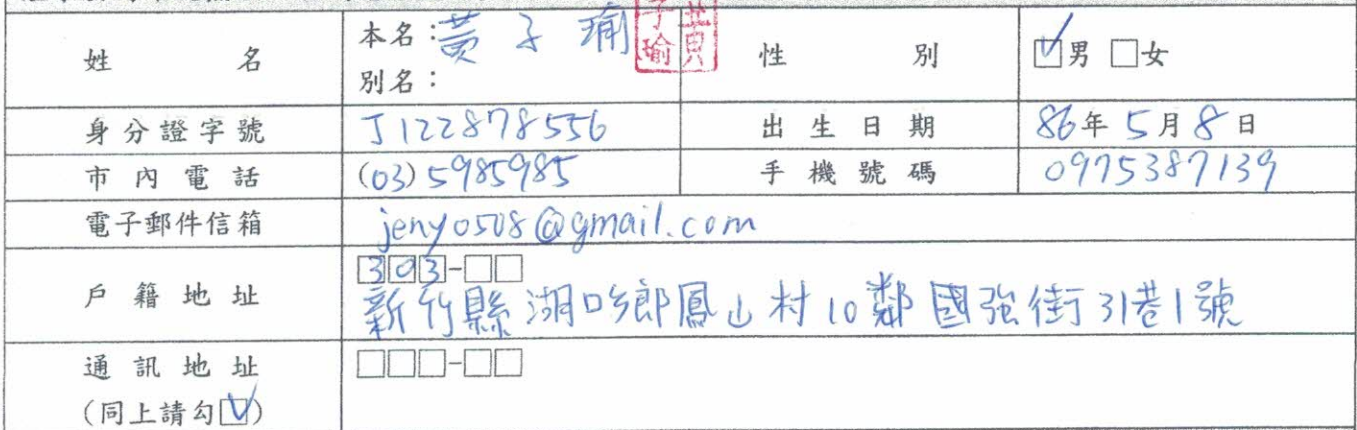 姓名 本名：黃子瑜 子瑜 黃 性別 ☑男 □女
別名：
身分證字號 J122878556 出生日期 86年5月8日
市內電話 (03)5985985 手機號碼 0975387139
電子郵件信箱 jeny0508@gmail.com
戶籍地址 303-□□
新竹縣湖口鄉鳳山村10鄰國強街31巷1號
通訊地址 □□□-□□
(同上請勾☑)